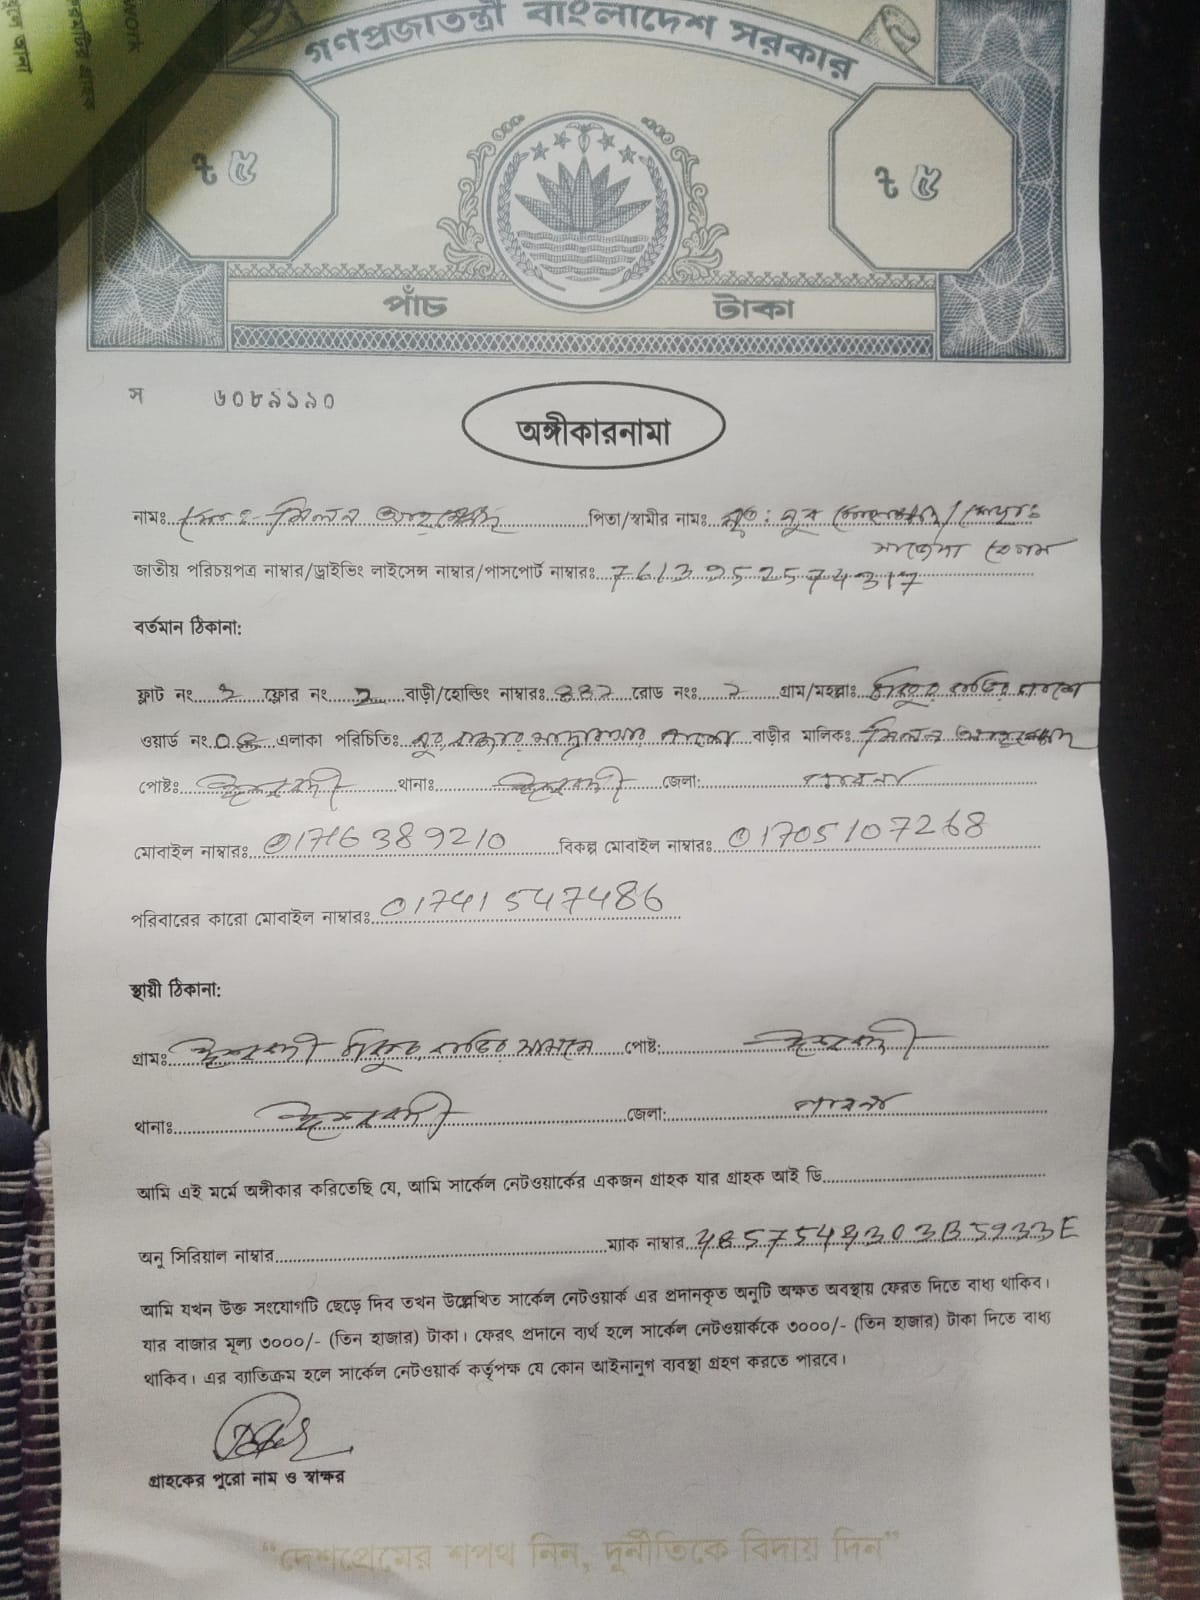 গণপ্রজাতন্ত্রী বাংলাদেশ সরকার
৳ ৫ ৳ ৫
পাঁচ টাকা
স ৬০৮৯১৯০
অঙ্গীকারনামা
নামঃ মোঃ মিলন আহম্মেদ পিতা/স্বামীর নামঃ মৃত: নুর
বেগম
জাতীয় পরিচয়পত্র নাম্বার/ড্রাইভিং লাইসেন্স নাম্বার/পাসপোর্ট নাম্বারঃ 7613952574317
বর্তমান ঠিকানা:
ফ্লাট নং 2 ফ্লোর নং 2 বাড়ী/হোল্ডিং নাম্বারঃ রোড নংঃ 2 গ্রাম/মহল্লাঃ
ওয়ার্ড নং এলাকা পরিচিতিঃ বাড়ীর মালিকঃ মিলন আহম্মেদ
পোষ্টঃ ঈশ্বরদী থানাঃ ঈশ্বরদী জেলা: পাবনা
মোবাইল নাম্বারঃ 01716389210 বিকল্প মোবাইল নাম্বারঃ 01705107268
পরিবারের কারো মোবাইল নাম্বারঃ 01741547486
স্থায়ী ঠিকানা:
গ্রামঃ ঈশ্বরদী সামনে পোষ্ট: ঈশ্বরদী
থানাঃ ঈশ্বরদী জেলা: পাবনা
আমি এই মর্মে অঙ্গীকার করিতেছি যে, আমি সার্কেল নেটওয়ার্কের একজন গ্রাহক যার গ্রাহক আই ডি
অনু সিরিয়াল নাম্বার ম্যাক নাম্বার
আমি যখন উক্ত সংযোগটি ছেড়ে দিব তখন উল্লেখিত সার্কেল নেটওয়ার্ক এর প্রদানকৃত অনুটি অক্ষত অবস্থায় ফেরত দিতে বাধ্য থাকিব।
যার বাজার মূল্য ৩০০০/- (তিন হাজার) টাকা। ফেরৎ প্রদানে ব্যর্থ হলে সার্কেল নেটওয়ার্ককে ৩০০০/- (তিন হাজার) টাকা দিতে বাধ্য
থাকিব। এর ব্যাতিক্রম হলে সার্কেল নেটওয়ার্ক কর্তৃপক্ষ যে কোন আইনানুগ ব্যবস্থা গ্রহণ করতে পারবে।
গ্রাহকের পুরো নাম ও স্বাক্ষর
“দেশপ্রেমের শপথ নিন, দুর্নীতিকে বিদায় দিন”